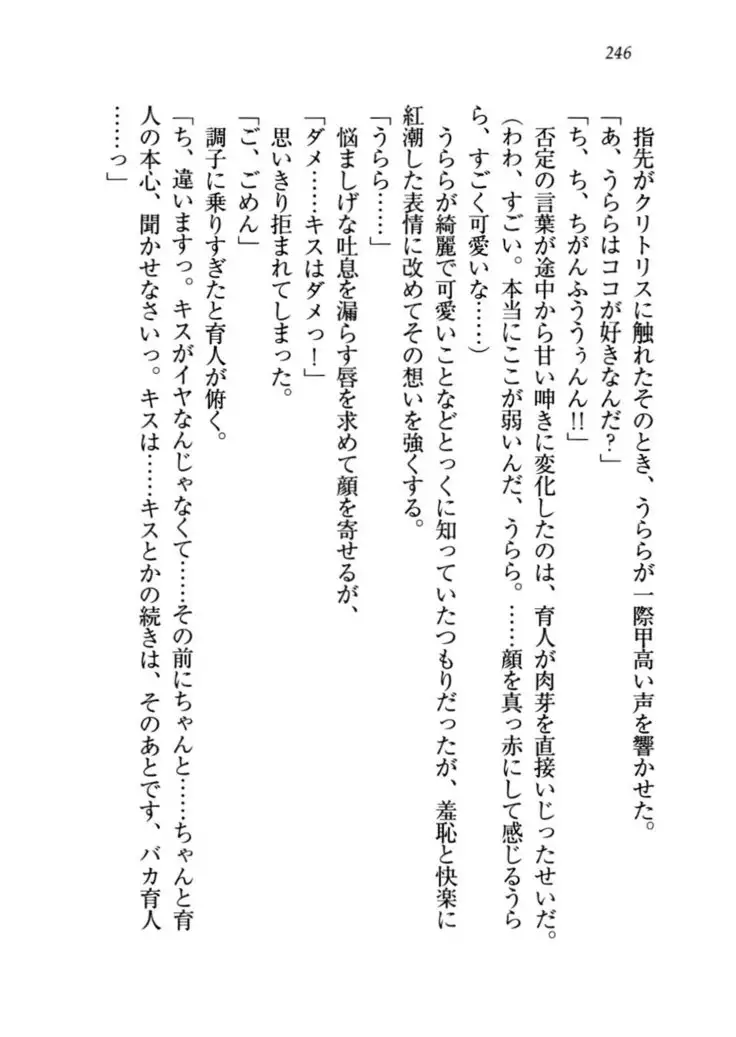 246
指先がクリトリスに触れたそのとき、うららが一際甲高い声を響かせた。
「あ、うららはココが好きなんだ?」
「ち、ち、ちがんふううぅんん!!」
否定の言葉が途中から甘い呻きに変化したのは、育人が肉芽を直接いじったせいだ。
(わわ、すごい。本当にここが弱いんだ、うらら。……顔を真っ赤にして感じるうら
ら、すごく可愛いな……)
うららが綺麗で可愛いことなどとっくに知っていたつもりだったが、羞恥と快楽に
紅潮した表情に改めてその想いを強くする。
「うらら……」
悩ましげな吐息を漏らす唇を求めて顔を寄せるが、
「ダメ……キスはダメっ!」
思いきり拒まれてしまった。
「ご、ごめん」
調子に乗りすぎたと育人が俯く。
「ち、違いますっ。キスがイヤなんじゃなくて……その前にちゃんと……ちゃんと育
人の本心、聞かせなさいっ。キスは……キスとかの続きは、そのあとです、バカ育人
……っ」